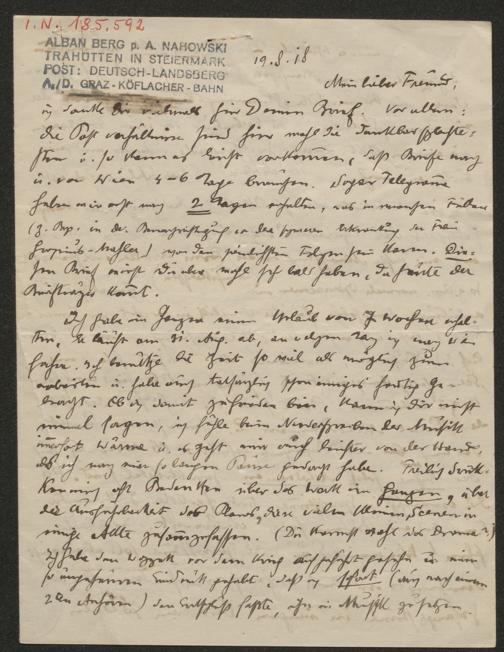 I.N. 185.592
ALBAN BERG p. A. NAHOWSKI
TRAHÜTTEN IN STEIERMARK
POST: DEUTSCH-LANDSBERG
A./D. GRAZ-KÖFLACHER-BAHN
19.8.18
Mein lieber Freund,
ich danke Dir vielmals für Deinen Brief. Vor allem:
die Post verhältnisse sind hier wohl die denkbar schlechte-
sten u. so kann es leicht vorkommen, daß Briefe nach
u. von Wien 4-6 Tage brauchen. Sogar Telegramme
haben wir erst nach 2 Tagen erhalten, was in manchen Fällen
(z. Bsp. in der Benachrichtigung von der schweren Erkrankung der Frau
-Mahler) von den peinlichsten Folgen sein kann. Die-
sen Brief wirst Du aber wohl sehr bald haben, da heute der
Briefträger kommt.
Ich habe im Ganzen einen Urlaub von 7 Wochen erhal-
ten, er läuft am 31. Aug. ab, an welchem Tag ich nach Wien
fahre. Ich benütze die Zeit so viel als möglich zum
arbeiten u. habe auch tatsächlich schon einiges fertig ge-
bracht. Ob ich damit zufrieden bin, kann ich Dir nicht
einmal sagen, ich fühle beim Niederschreiben der Musik
immerhin Wärme u. es geht mir auch leichter von der Hand,
als ich nach einer so langen Pause gedacht habe. Freilich
kommen oft Bedenken über das Werk im Ganzen, über
die Ausführbarkeit des Planes, diese vielen kleinen Scenen in
einige Akte zusammzufassen. (Du kennst wohl das Drama?)
Ich habe den Wozzek vor dem Krieg aufgeführt gesehn u. einen
so ungeheueren Eindruck gehabt, daß ich sofort (auch nach einem
2ten Anhören) den Entschluß faßte, ihn in Musik zu setzen